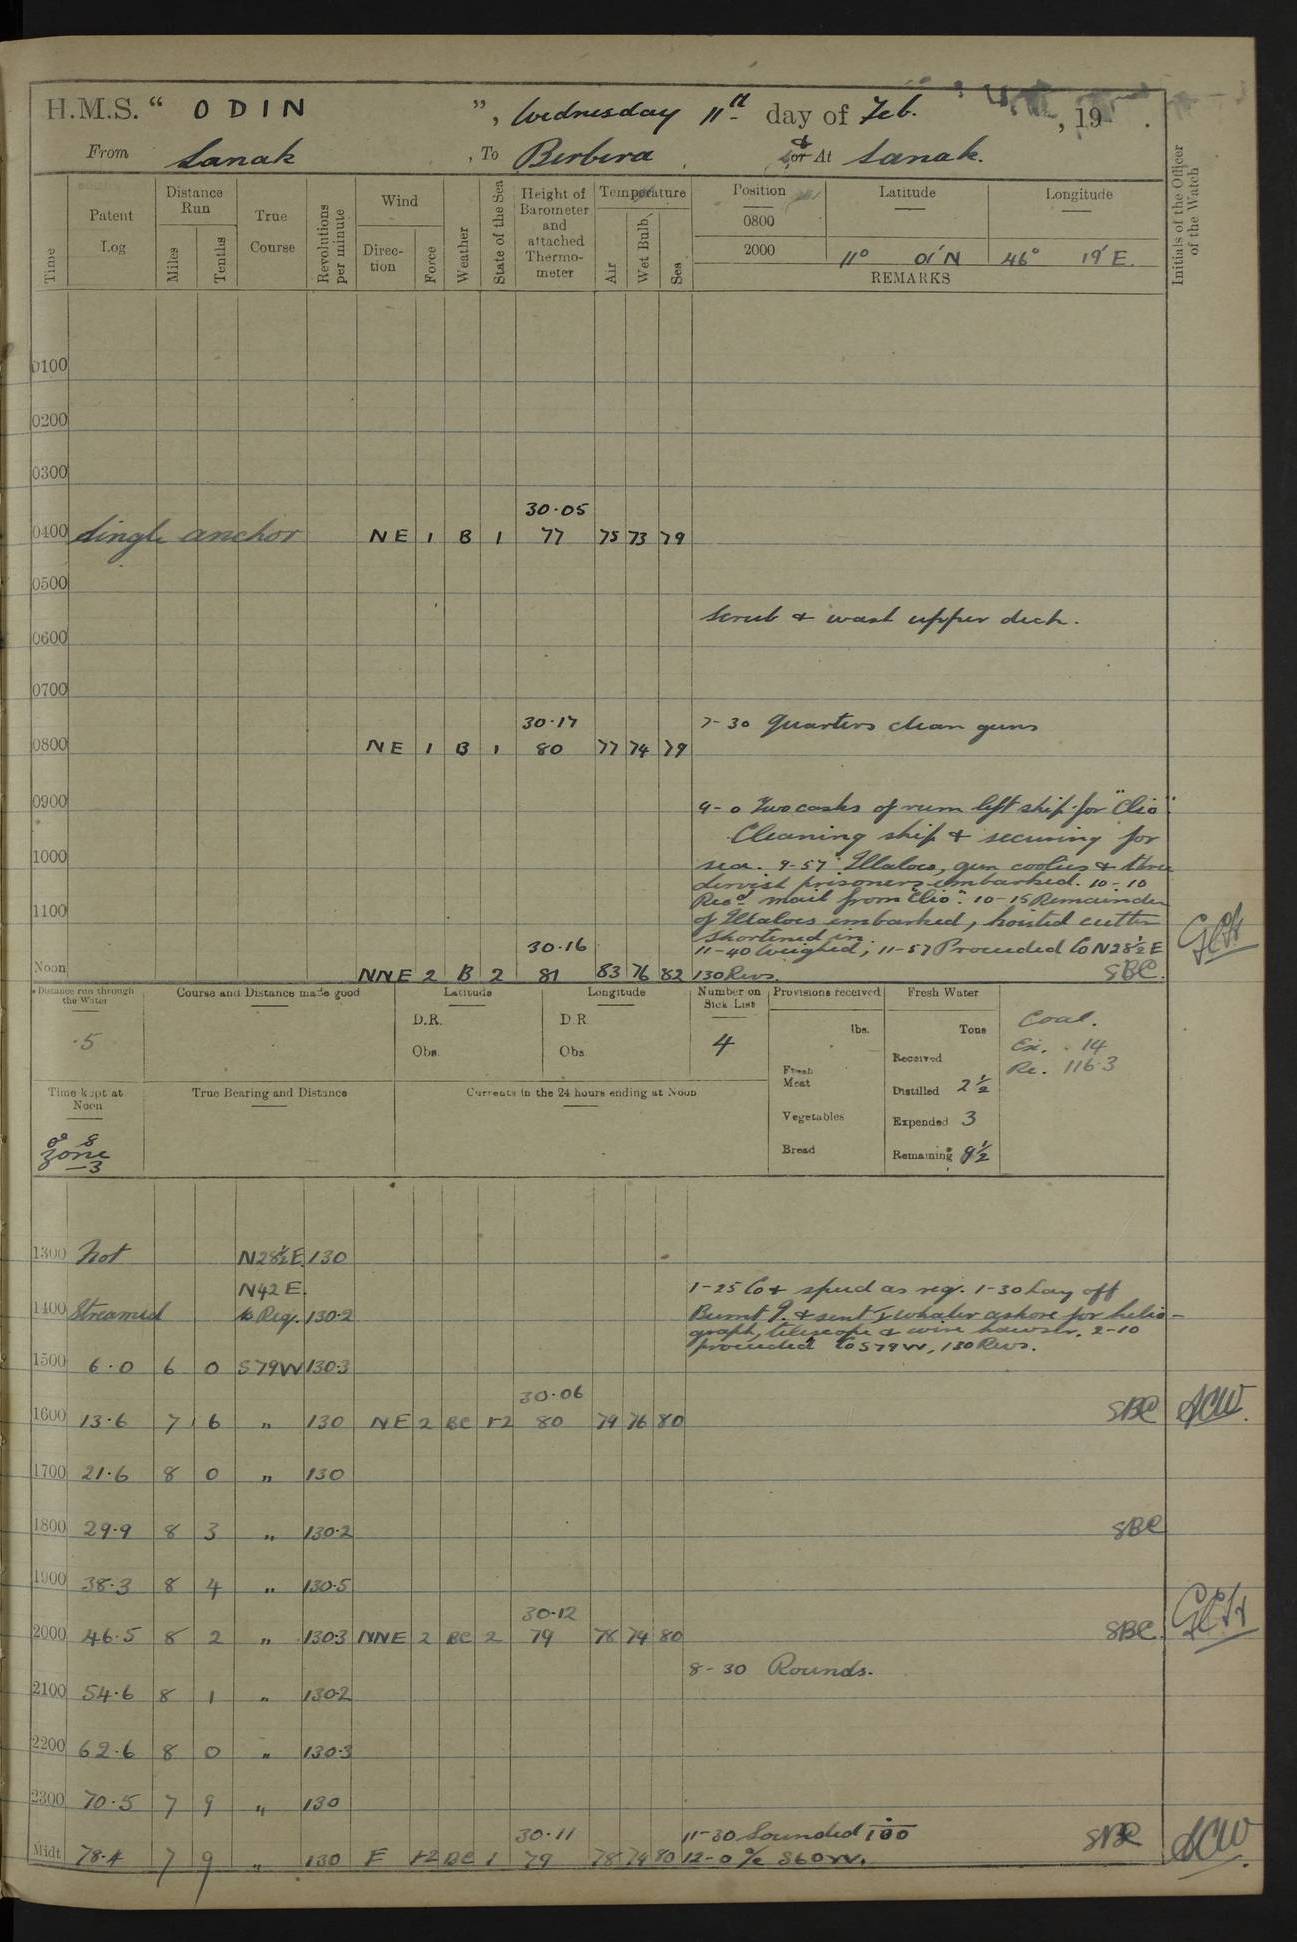 H.M.S. “ ODIN ”, Wednesday 11th day of Feb. , 19 .
From Sanak , To Berbera , & or At Sanak.
Time
Patent Log
Distance Run
Miles
Tenths
True Course
Revolutions per minute
Wind
Direc-tion
Force
Weather
State of the Sea
Height of Barometer and attached Thermo-meter
Temperature
Air
Wet Bulb
Sea
Position
Latitude
Longitude
0800
2000 11° 01' N 46° 19' E.
REMARKS
Initials of the Officer of the Watch
0100
0200
0300
30.05
0400 Single anchor NE 1 B 1 77 75 73 79
0500
Scrub & wash upper deck.
0600
0700
30.17 7-30 Quarters clean guns
0800 NE 1 B 1 80 77 74 79
0900 9-0 Two casks of rum left ship for "Clio".
Cleaning ship & securing for
1000 sea. 9-57 Illaloes, gun coolies & three
dervish prisoners embarked. 10-10
Recd mail from "Clio". 10-15 Remainder
1100 of Illaloes embarked, hoisted cutter
Shortened in.
30.16 11-40 Weighed, 11-57 Proceeded Co N28½E
Noon NNE 2 B 2 81 83 76 82 130 Revs. SBC.
Distance run through the Water
.5
Course and Distance made good
Latitude
D.R.
Obs.
Longitude
D.R.
Obs.
Number on Sick List
4
Provisions received
lbs.
Fresh Meat
Vegetables
Bread
Fresh Water
Tons
Received
Distilled 2½
Expended 3
Remaining 9½
Coal.
Ex. 14
Re. 116.3
Time kept at Noon
Zone
-3
True Bearing and Distance
Currents in the 24 hours ending at Noon
1300 Not N28½E 130
N42E. 1-25 Co & speed as req. 1-30 Lay off
1400 Streamed to Req. 130.2 Burnt I. & sent whaler ashore for helio-
graph, telescope & wire hawser. 2-10
proceeded Co S79W, 130 Revs.
1500 6.0 6 0 S79W 130.3
30.06
1600 13.6 7 6 " 130 NE 2 BC 1-2 80 79 76 80 SBC
1700 21.6 8 0 " 130
1800 29.9 8 3 " 130.2 SBC
1900 38.3 8 4 " 130.5
30.12
2000 46.5 8 2 " 130.3 NNE 2 BC 2 79 78 74 80 SBC.
8-30 Rounds.
2100 54.6 8 1 " 130.2
2200 62.6 8 0 " 130.3
2300 70.5 7 9 " 130
30.11 11-30 Sounded 100
Midt 78.4 7 9 " 130 E 1-2 BC 1 79 78 74 80 12-0 a/c S60W. SBC